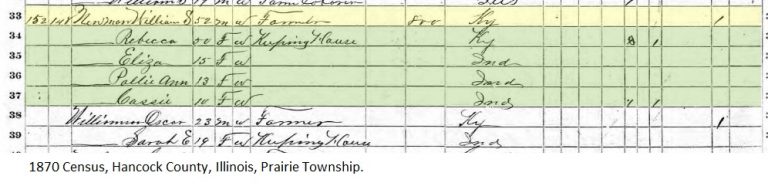 33 152 148 Newman William S 52 m w Farmer 800 Ky 1
34 Rebecca 50 F w Keeping House Ky 8 1
35 Eliza 15 F w Ind
36 Pollie Ann 13 F w Ind
37 Cassie 10 F w Ind 1
38 Oscar 23 m w Farmer Ky 1
39 Sarah E 19 F w Keeping House Ind
1870 Census, Hancock County, Illinois, Prairie Township.